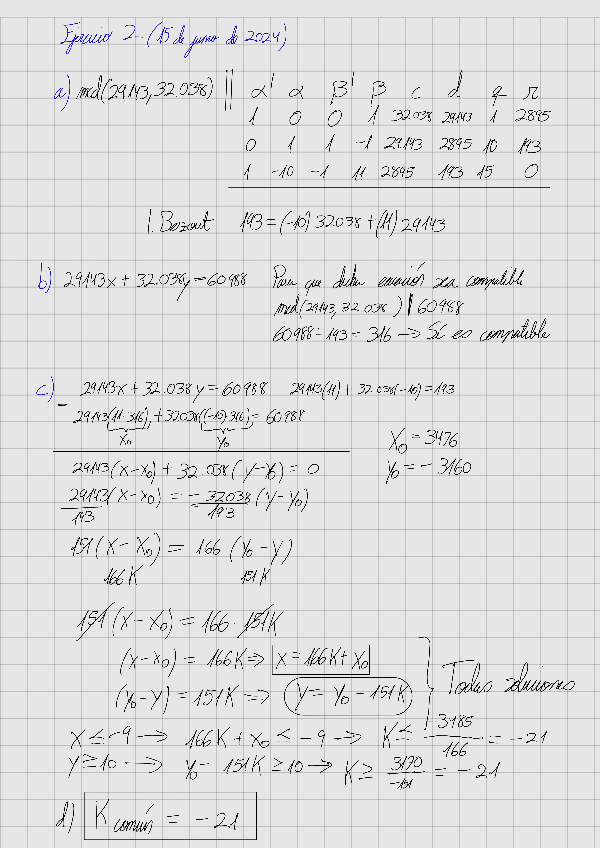 Ejercicio 2. (15 de junio de 2024)
a) mcd(29143, 32.038) || α' α β' β c d q r
1 0 0 1 32.038 29143 1 2895
0 1 1 -1 29143 2895 10 193
1 -10 -1 11 2895 193 15 0
I. Bezout 193 = (-10) 32.038 + (11) 29143
b) 29143x + 32.038y = 60988 Para que dicha ecuación sea compatible
mcd(29143, 32.038) | 60988
60988 ÷ 193 = 316 → Sí es compatible
c) 29143x + 32.038y = 60988 29143(11) + 32.038(-10) = 193
- 29143(11·316) + 32038((-10)316) = 60988
x₀ y₀
x₀ = 3476
y₀ = -3160
29143(x-x₀) + 32.038(y-y₀) = 0
29143/193 (x-x₀) = -32038/193 (y-y₀)
151(x-x₀) = 166 (y₀-y)
166K 151K
151(x-x₀) = 166·151K
(x-x₀) = 166K ⇒ x = 166K + x₀
(y₀-y) = 151K ⇒ y = y₀ - 151K } Todas soluciones
x ≤ -9 → 166K + x₀ < -9 → K ≤ 3485/166 = -21
y ≥ 10 → y₀ - 151K ≥ 10 → K ≥ 3170/-151 = -21
d) K común = -21